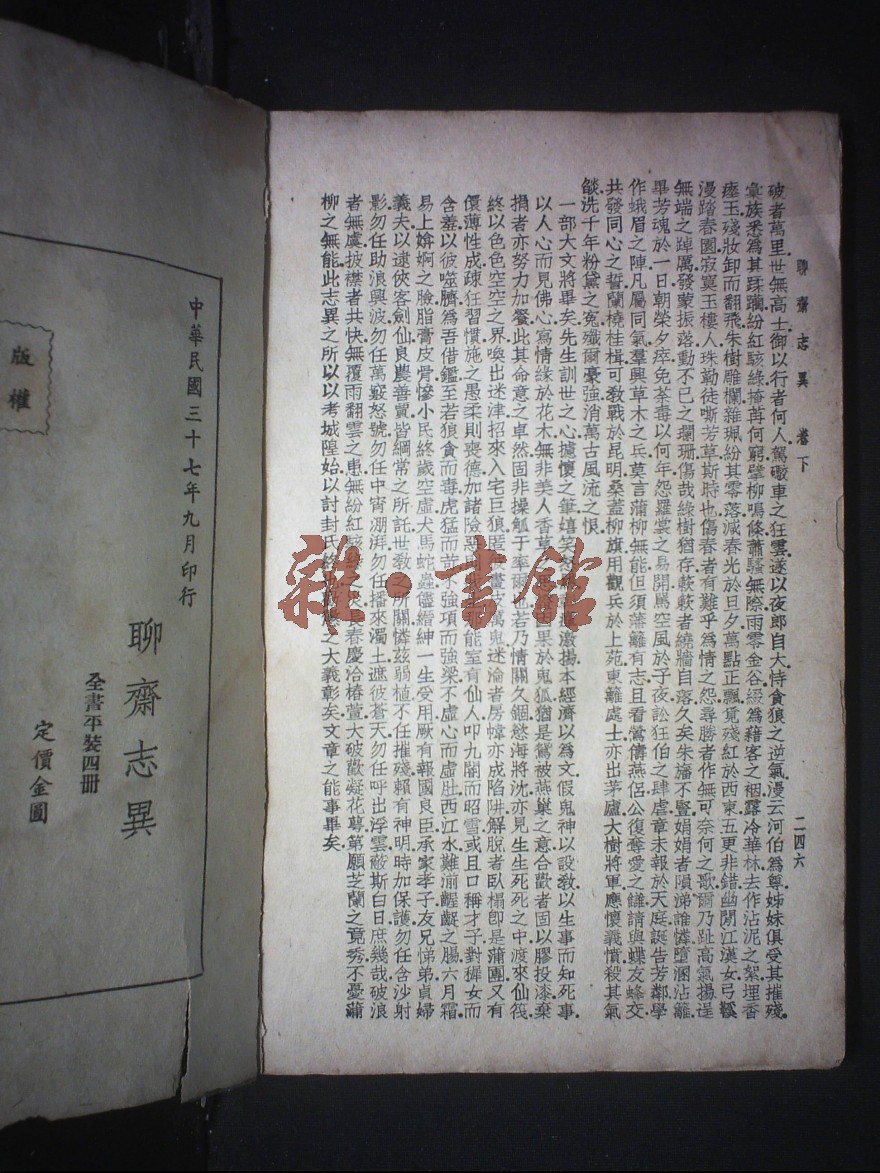 聊齋志異 卷下
二四六
破者萬里世無高士御以行者何人駕礮車之狂雲遂以夜郎自大恃貪狼之逆氣漫云河伯為尊姊妹俱受其摧殘
彙族悉為其蹂躪紛紅駭綠掩苒何窮擘柳鳴條蕭騷無際雨零金谷綴為藉客之裀露冷華林去作沾泥之絮埋香
瘞玉殘妝卸而翻飛朱榭雕欄雜珮紛其零落減春光於旦夕萬點正飄覓殘紅於西東五更非錯幽閒江漢女弓鞋
漫踏春園寂寞玉樓人珠勒徒嘶芳草斯時也傷春者有難乎為情之怨尋勝者作無可奈何之歌爾乃趾高氣揚逞
無端之踔厲發蒙振落動不已之瓓珊傷哉綠樹猶存簌簌者繞牆自落久矣朱旛不豎娟娟者隕涕誰憐墮溷沾籬
畢芳魂於一日朝榮夕瘁免荼毒以何年怨羅裳之易開罵空風於子夜訟狂伯之肆虐章未報於天庭誕告芳鄰學
作蛾眉之陣凡屬同氣羣興草木之兵莫言蒲柳無能但須藩籬有志且看鶯儔燕侶公復奪愛之讎請與蝶友蜂交
共發同心之誓蘭橈桂楫可教戰於昆明桑蓋柳旗用觀兵於上苑東籬處士亦出茅廬大樹將軍應懷義憤殺其氣
燄洗千年粉黛之冤殲爾豪強消萬古風流之恨
一部大文將畢矣先生訓世之心攄懷之筆嬉笑怒激揚本經濟以為文假鬼神以設教以生事而知死事
以人心而見佛心寫情緣於花木無非美人香草果於鬼狐猶是鴛被燕巢之意合歡者固以膠投漆棄
捐者亦努力加餐此其命意之卓然固非操觚于率爾也若乃情關久錮慾海將沈亦見生生死死之中渡來仙筏
終以色色空空之界喚出迷津招來入宅巨狼匿畫皮萬鬼迷淪者房幃亦成陷阱解脫者臥榻卽是蒲團又有
儇薄性成疎狂習慣施之愚柔則喪德加諸險惡則能室有仙人叩九閽而昭雪或且口稱才子對嬋女而
含羞以彼噬臍為吾借鑑至若狼貪而毒虎猛而苛不強項而強梁不虛心而虛肚西江水難湔齷齪之腸六月霜
易上婾婀之臉脂膏皮骨慘小民終歲空虛犬馬蛇蟲儘縉紳一生受用厥有報國良臣承家孝子友兄悌弟貞婦
義夫以逮俠客劍仙良農善賈皆綱常之所託世教之所關憐玆弱植不任摧殘賴有神明時加保護勿任含沙射
影勿任助浪興波勿任萬竅怒號勿任中宵淜湃勿任播來濁土遮彼蒼天勿任呼出浮雲蔽斯白日庶幾哉破浪
者無虞披襟者共快無覆雨翻雲之患無紛紅駭綠之長春慶洽椿萱大破歡凝花萼第願芝蘭之競秀不憂蒲
柳之無能此志異之所以以考城隍始以討封氏終之大義彰矣文章之能事畢矣
雜·書館
版權
中華民國三十七年九月印行
聊齋志異
全書平裝四冊
定價金圓